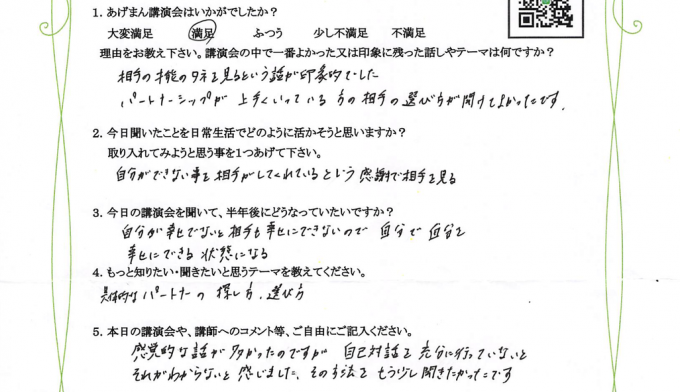 1. あげまん講演会はいかがでしたか？
大変満足 満足 ふつう 少し不満足 不満足
理由をお教え下さい。講演会の中で一番よかった又は印象に残った話しやテーマは何ですか？
相手の才能の方を見るという話が印象的でした
パートナーシップが上手くいっている方の相手の選び方が聞けてよかったです。
2. 今日聞いたことを日常生活でどのように活かそうと思いますか？
取り入れてみようと思う事を1つあげて下さい。
自分ができない事を相手がしてくれているという感謝で相手を見る
3. 今日の講演会を聞いて、半年後にどうなっていたいですか？
自分が幸せでないと相手も幸せにできないので 自分で自分を
幸せにできる状態になる
4. もっと知りたい・聞きたいと思うテーマを教えてください。
具体的なパートナーの探し方、選び方
5. 本日の講演会や、講師へのコメント等、ご自由にご記入ください。
感覚的な話が多かったのですが 自己対話を充分に行っていないと
それがわからないと感じました、その方法をもう少し聞きたかったです